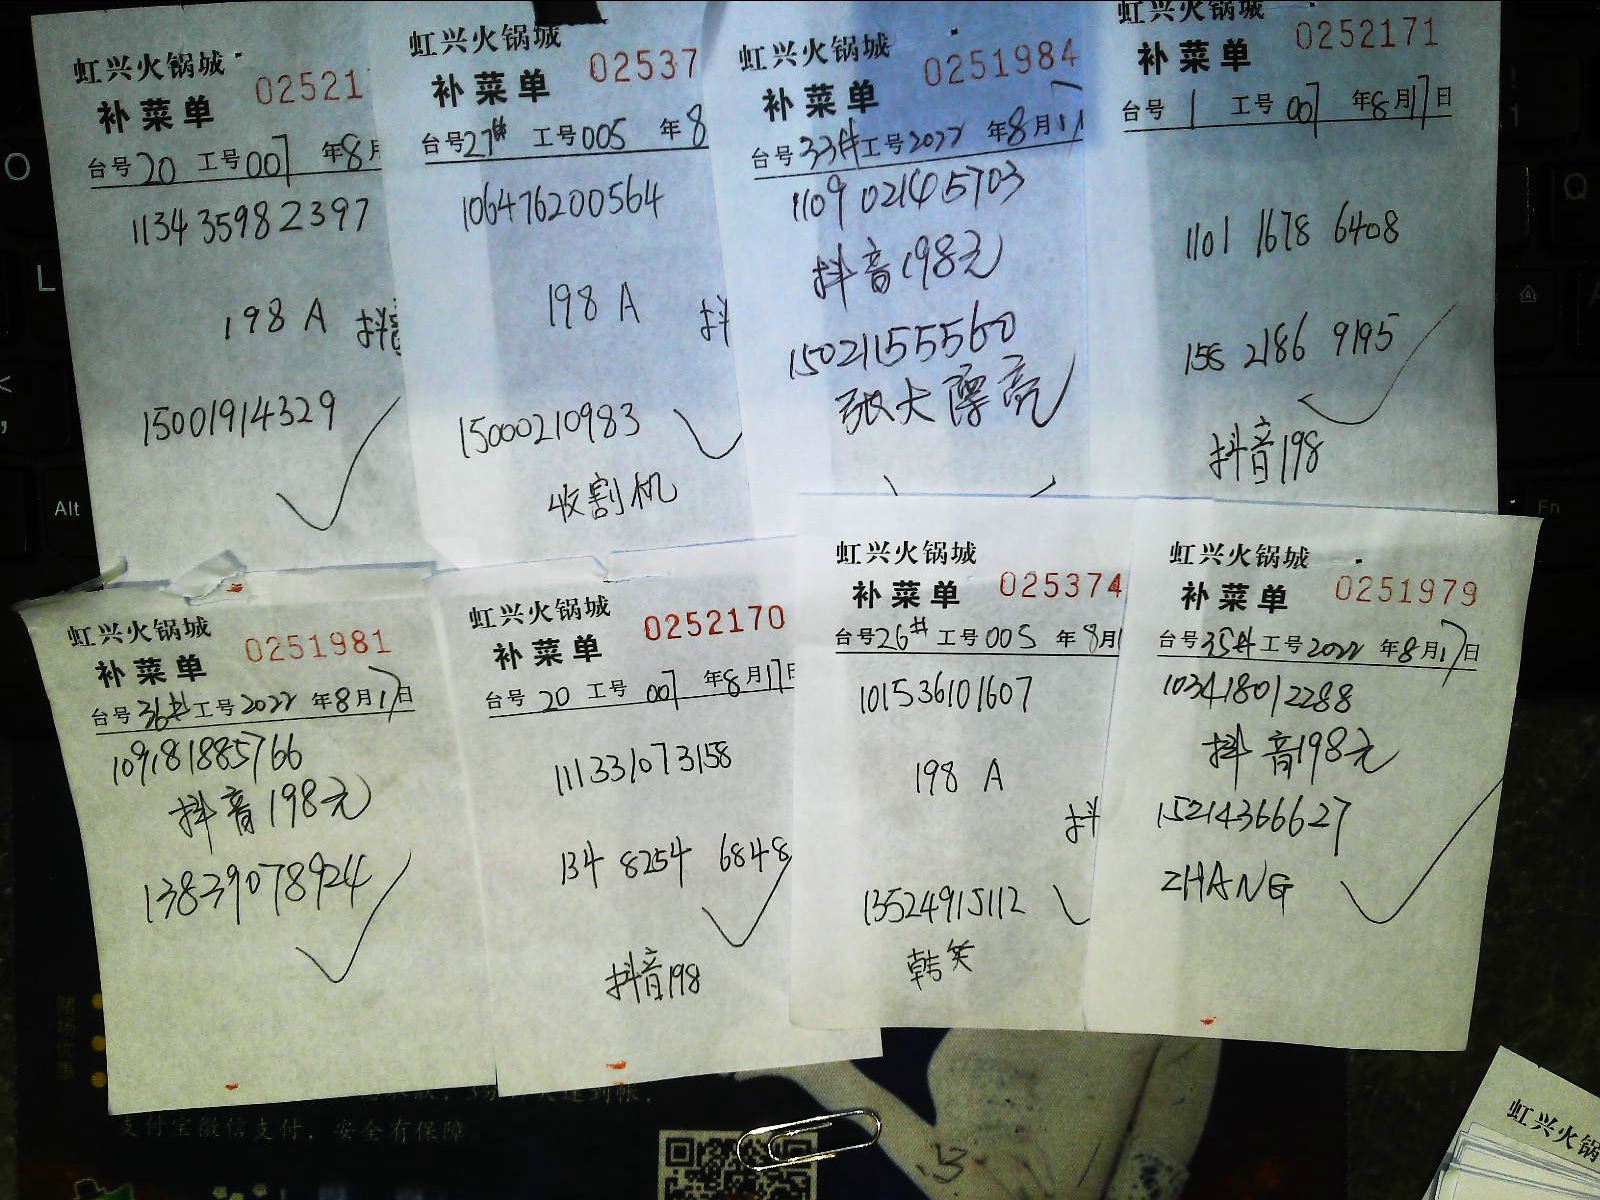 虹兴火锅城
02521
补菜单
台号20 工号007 年8月
113435982397
198 A 抖音
15001914329
虹兴火锅城
02537
补菜单
台号27# 工号005 年8
106476200564
198 A 抖
15000210983
收割机
虹兴火锅城
0251984
补菜单
台号33# 工号2022 年8月17
1109 021405703
抖音198元
15021155560
张大漂亮
虹兴火锅城
0252171
补菜单
台号1 工号007 年8月17日
1101 1678 6408
158 2186 9195
抖音198
虹兴火锅城
0251981
补菜单
台号36# 工号2022 年8月17日
109181885766
抖音198元
13839078924
虹兴火锅城
0252170
补菜单
台号20 工号007 年8月17日
111331073158
134 8254 6848
抖音198
虹兴火锅城
025374
补菜单
台号26# 工号005 年8月1
101536101607
198 A
抖
13524915112
韩笑
虹兴火锅城
0251979
补菜单
台号35# 工号2022 年8月17日
103418012288
抖音198元
15214366627
ZHANG
支付宝微信支付，安全有保障
虹兴火锅